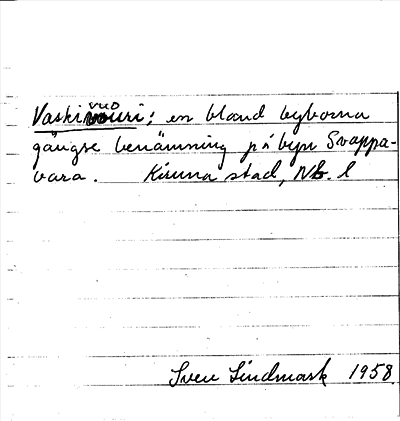 Vaskivuouri; en bland byborna
gängse benämning på byn Svappa-
vara. Kiruna stad, Nb. l
Sven Lindmark 1958.